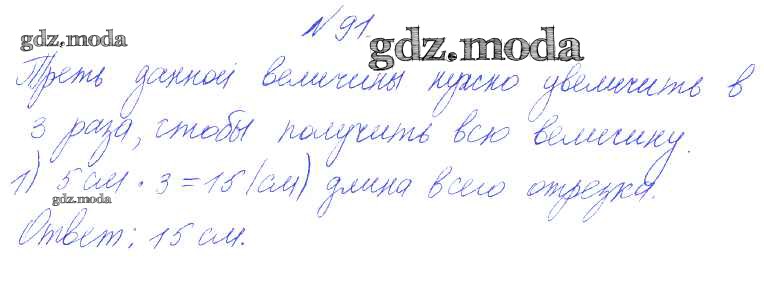 № 91.
gdz.moda
gdz.moda
Треть данной величины нужно увеличить в
3 раза, чтобы получить всю величину.
1) 5 см · 3 = 15 (см) длина всего отрезка.
gdz.moda
Ответ: 15 см.